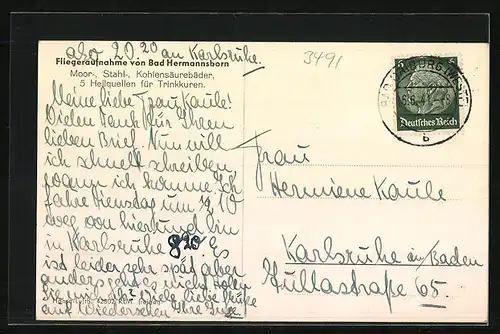 also 20.20 an Karlsruhe.
Fliegeraufnahme von Bad Hermannsborn
Moor-, Stahl-, Kohlensäurebäder,
5 Heilquellen für Trinkkuren.
Meine liebe Frau Kaule!
Vielen Dank für Ihren
lieben Brief. Nun will
ich schnell schreiben
wann ich komme. Ich
fahre Dienstag um 12.10
weg von hier und bin
in Karlsruhe 8 20. Es
ist leider sehr spät aber
anders geht es nicht. Holen
Sie mich liebe Grüße
auf Wiedersehen Ihre
3491
5
Deutsches Reich
BAD DRIBURG (WESTF)
b
Frau
Hermiene Kaule
Karlsruhe in/Baden
Tullastraße 65.